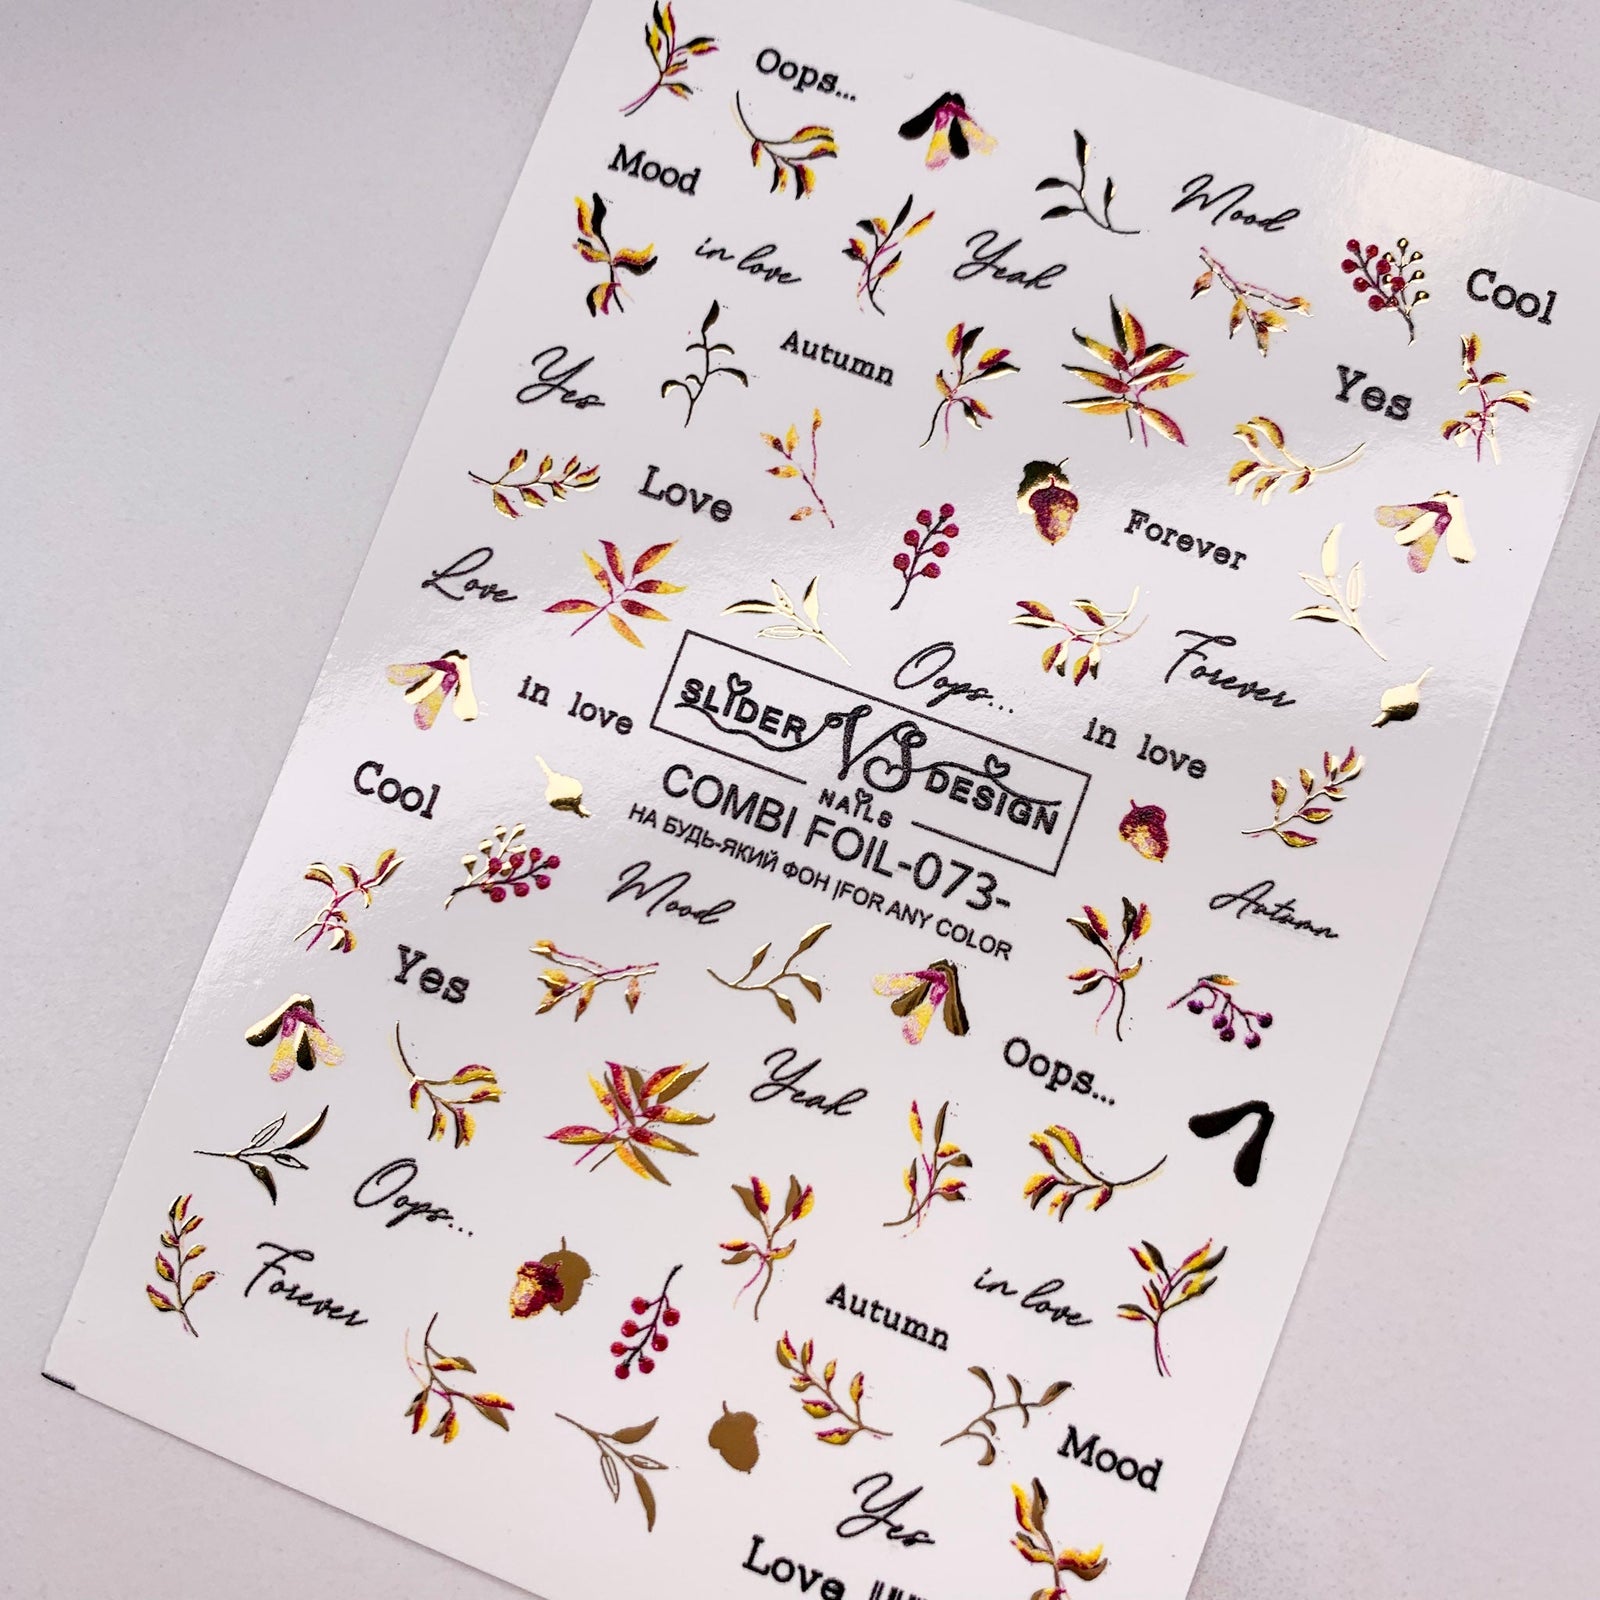 Oops...
Mood
Mood
in love
Yeah
Cool
Autumn
Yes
Yes
Love
Forever
Love
Oops...
Forever
in love
SLIDER VS DESIGN
NAILS
in love
Cool
COMBI FOIL-073-
НА БУДЬ-ЯКИЙ ФОН |FOR ANY COLOR
Mood
Autumn
Yes
Yeah
Oops...
Oops...
Forever
in love
Autumn
Mood
Yes
Love